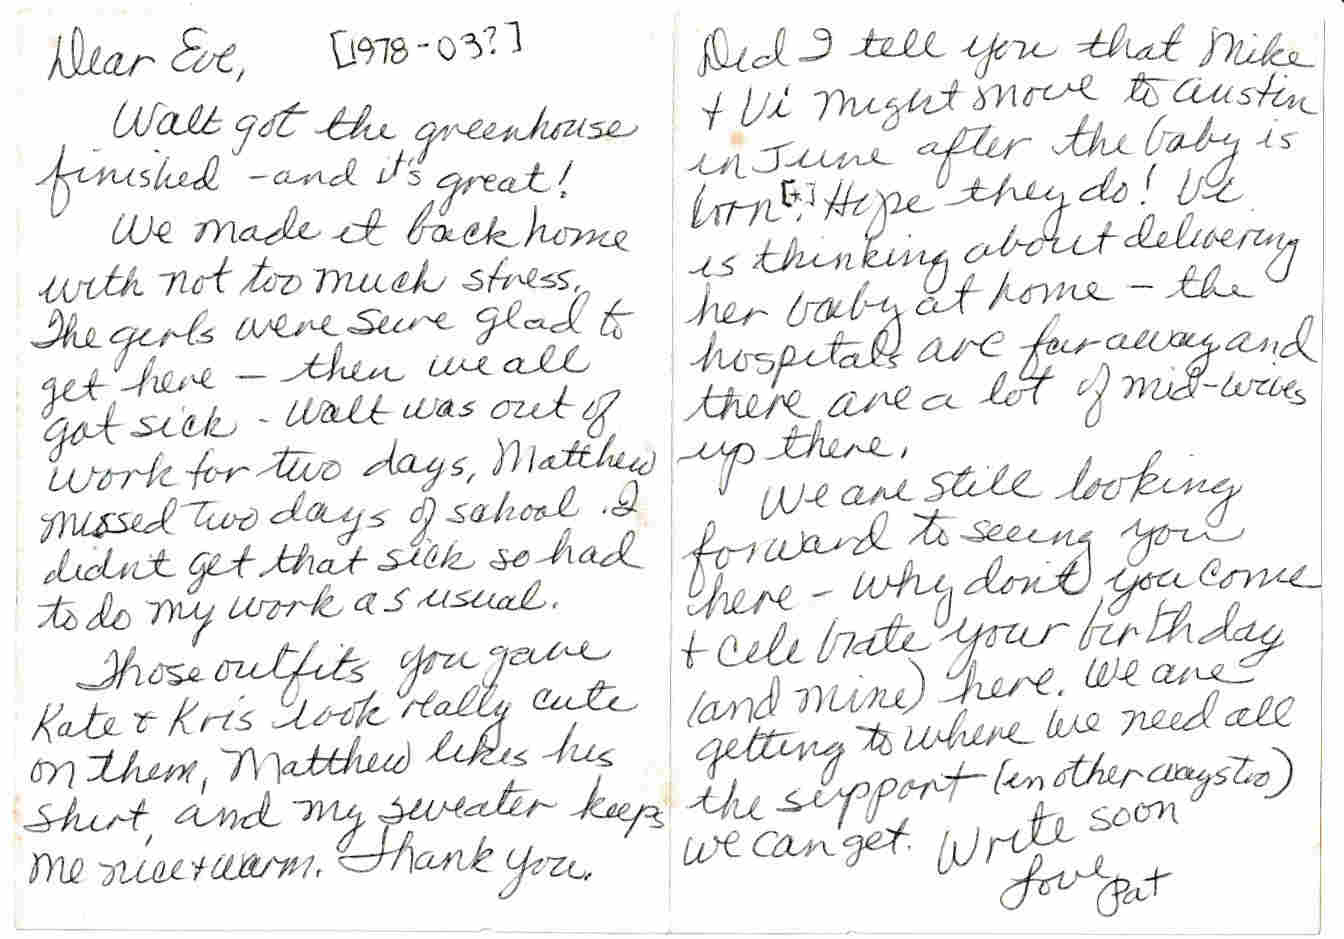 Dear Eve, [1978-03?]
Walt got the greenhouse
finished - and it's great!
We made it back home
with not too much stress.
The girls were sure glad to
get here - then we all
got sick - Walt was out of
work for two days, Matthew
missed two days of school. I
didn't get that sick so had
to do my work as usual.
Those outfits you gave
Kate & Kris look really cute
on them, Matthew likes his
shirt, and my sweater keeps
me nice + warm. Thank you.
Did I tell you that Mike
+ Vi might move to Austin
in June after the baby is
born[*]? Hope they do! Vi
is thinking about delivering
her baby at home - the
hospitals are far away and
there are a lot of mid-wives
up there.
We are still looking
forward to seeing you
here - why don't you come
+ celebrate your birthday
(and mine) here. We are
getting to where we need all
the support (in other ways too)
we can get. Write soon
Love,
Pat